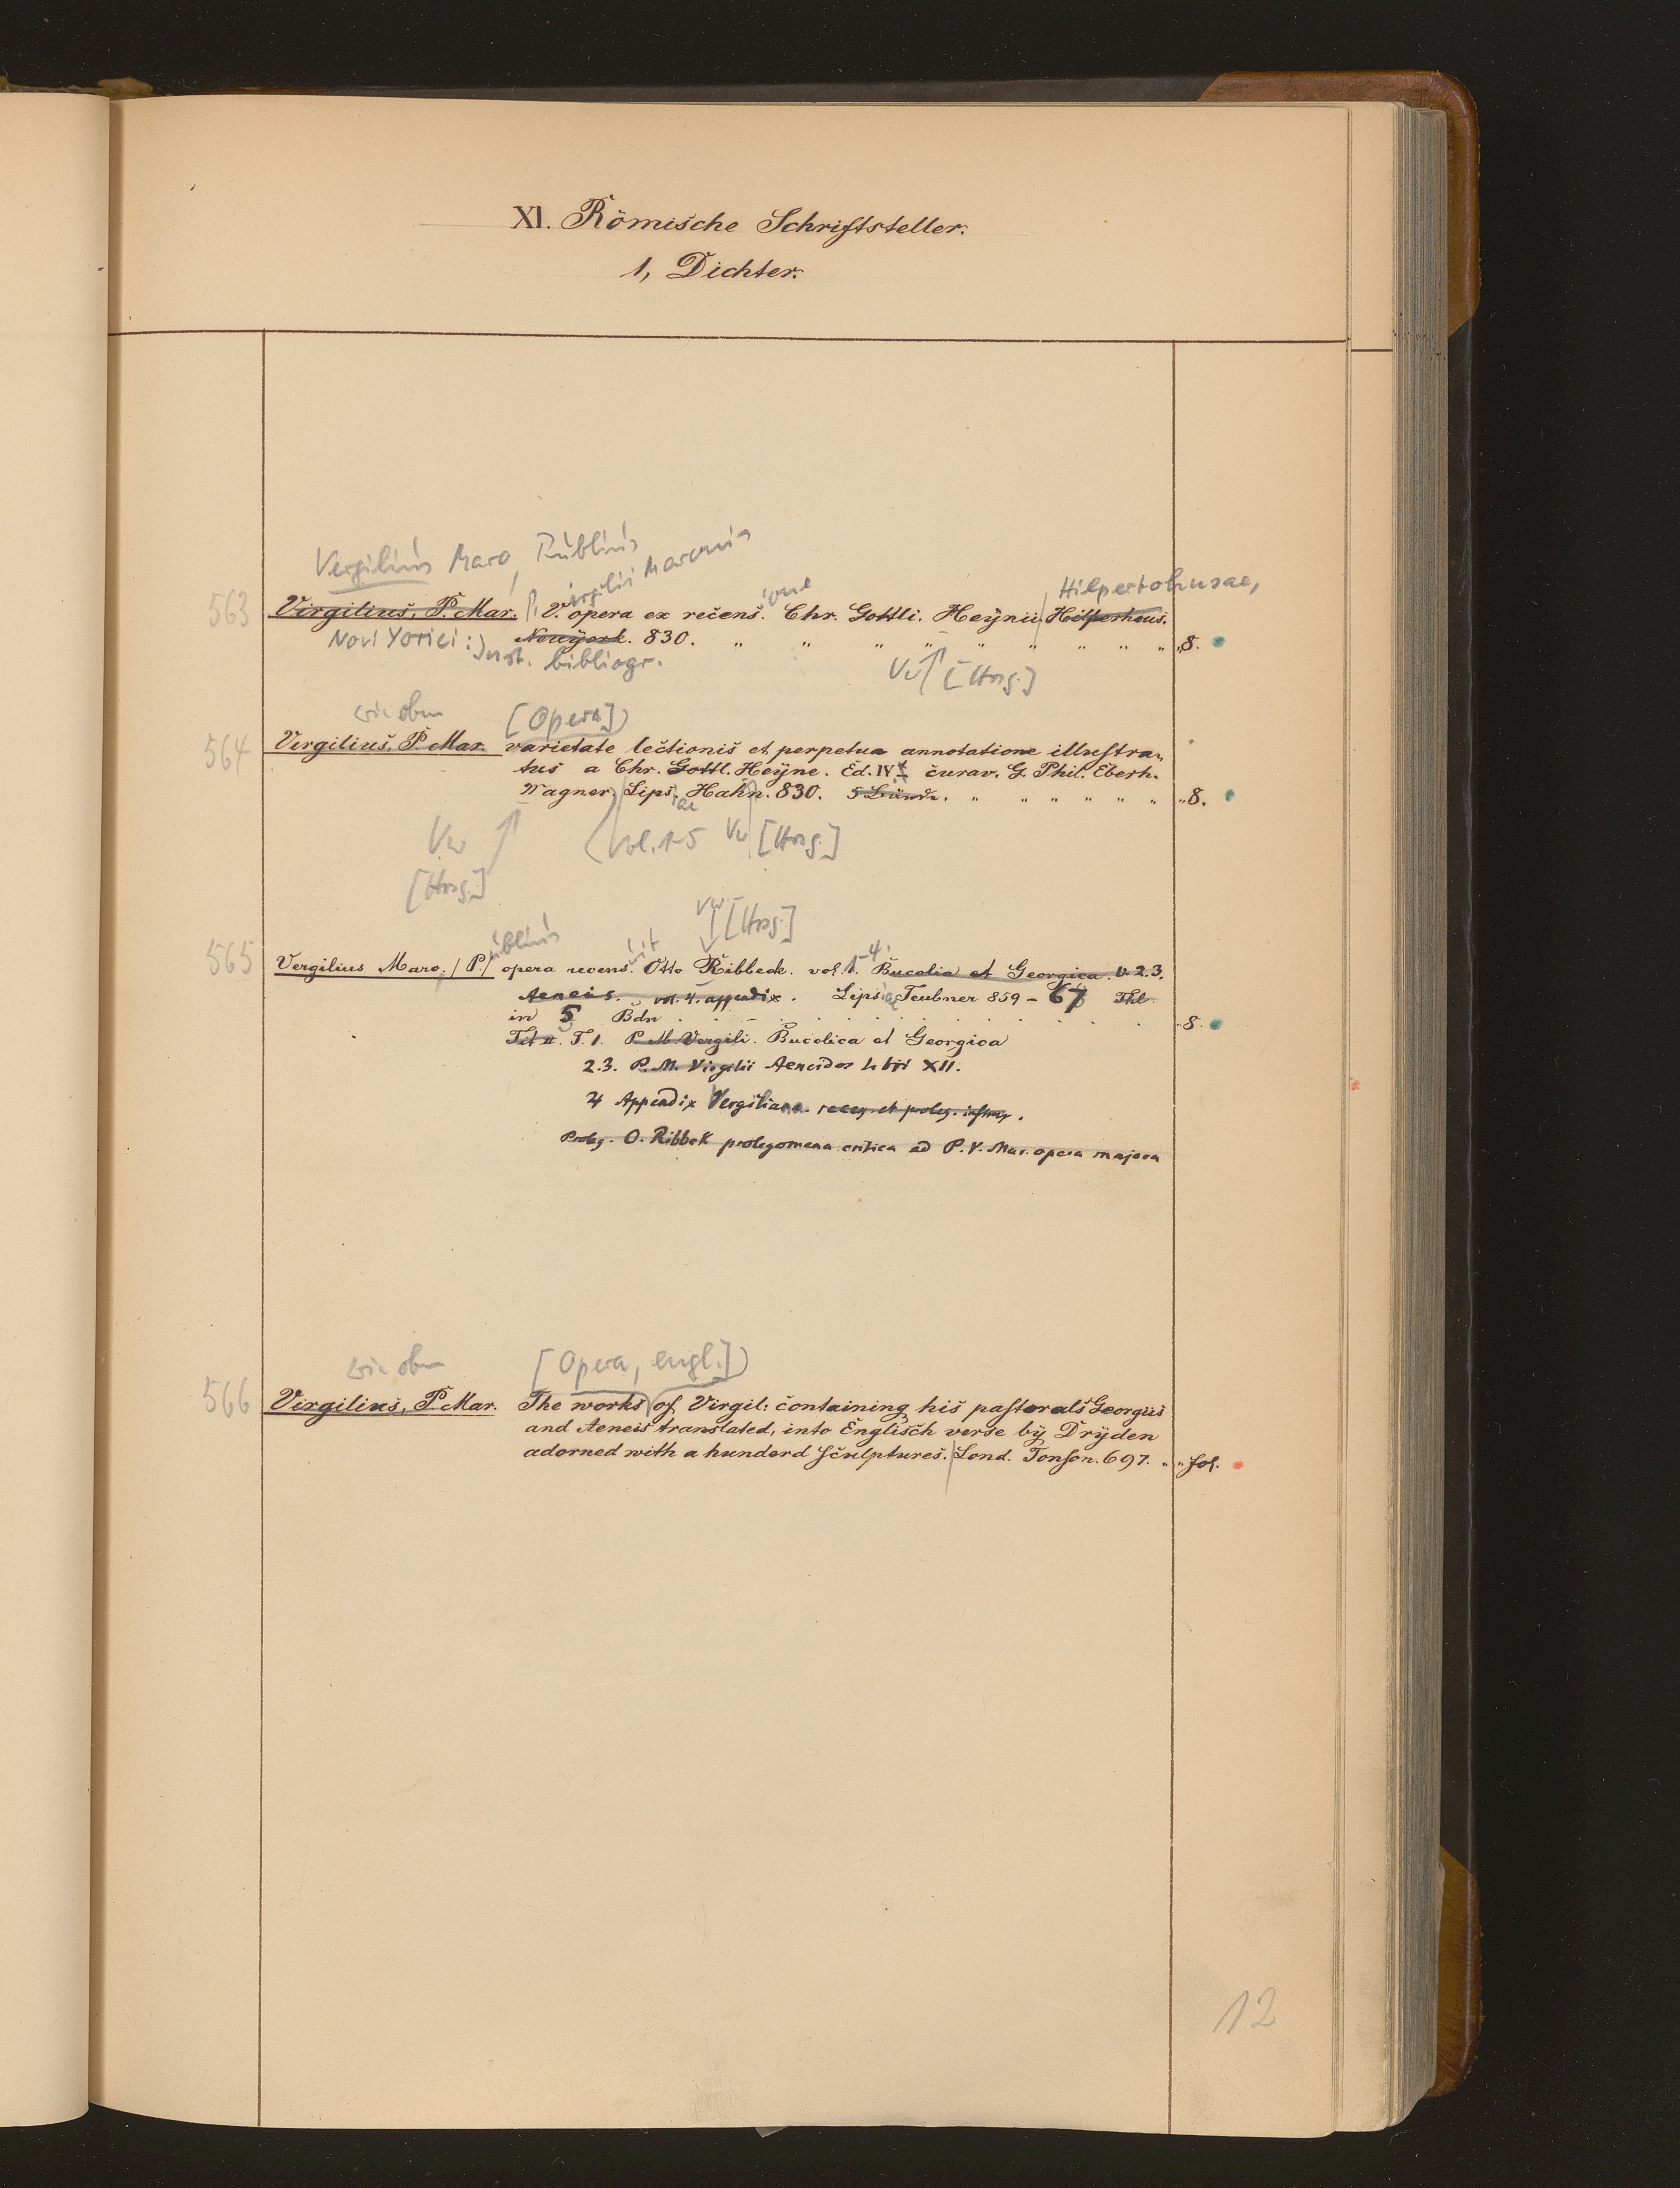 XI. Römische Schriftsteller.
1, Dichter.
Vergilius Maro, Publius
Virgilii Maronis
563 Virgilius, P. Mar. P. V. opera ex recens. ione Chr. Gottli. Heynii Hilperhous. Hilpertohusae,
Novi Yorici: Inst. bibliogr. Newyork. 830. " " " " " " " " " "8.
Vw [Hrsg.]
wie oben [Opera]
564 Virgilius, P. Mar. varietate lectionis et perpetua annotatione illustra-
tus a Chr. Gottl. Heyne. Ed. IV curav. G. Phil. Eberh.
Wagner. Lips. iae Hahn. 830. 5 Bände. " " " " " " "8.
Vw [Hrsg.]
vol. 1-5 Vw [Hrsg.]
Vw [Hrsg.]
565 Vergilius Maro, /P./ ublius opera recens. uit Otto Ribbeck. vol. 1-4. Bucolia et Georgica. v. 2.3.
Aeneis. vol. 4. appendix. Lipsiae Teubner 859-67 Thl.
in 5 Bdn . . . . . . . . . . 8.
Tit II. T. 1. P. M. Vergili. Bucolica et Georgica
2.3. P. M. Virgilii Aeneidos libri XII.
4 Appendix Vergiliana. recog. et proleg.
Proleg. O. Ribbek prolegomena critica ad P. V. Mar. opera majora
wie oben [Opera, engl.]
566 Virgilius, P. Mar. The works of Virgil: containing his pastorals Georgus
and Aeneis translated, into Englisch verse by Dryden
adorned with a hunderd Sculptures. Lond. Tonson. 697. " " fol.
12